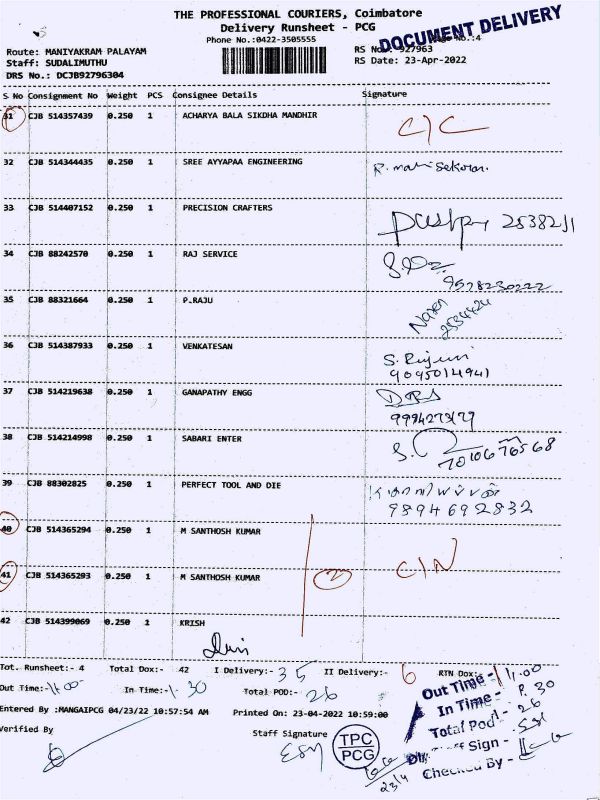 THE PROFESSIONAL COURIERS, Coimbatore
Delivery Runsheet - PCG
DOCUMENT DELIVERY
Phone No.:0422-3505555
No.:4
Route: MANIYAKRAM PALAYAM
RS No.: 927963
Staff: SUDALIMUTHU
RS Date: 23-Apr-2022
DRS No.: DCJB92796304
S No Consignment No Weight PCS Consignee Details Signature
31 CJB 514357439 0.250 1 ACHARYA BALA SIKDHA MANDHIR C/C
32 CJB 514344435 0.250 1 SREE AYYAPAA ENGINEERING
33 CJB 514407152 0.250 1 PRECISION CRAFTERS 2538211
34 CJB 88242570 0.250 1 RAJ SERVICE
9578230222
35 CJB 88321664 0.250 1 P.RAJU
2534424
36 CJB 514387933 0.250 1 VENKATESAN
9095014941
37 CJB 514219638 0.250 1 GANAPATHY ENGG
38 CJB 514214998 0.250 1 SABARI ENTER
39 CJB 88302825 0.250 1 PERFECT TOOL AND DIE
9894692832
40 CJB 514365294 0.250 1 M SANTHOSH KUMAR
41 CJB 514365293 0.250 1 M SANTHOSH KUMAR 2 C/N
42 CJB 514399069 0.250 1 KRISH
Tot. Runsheet:- 4 Total Dox:- 42 I Delivery:- 35 II Delivery:- 6 RTN Dox: 1
Out Time:- 11.00 In Time:- 1.30 Total POD:- 26
Out Time - 11.00
In Time - 1.30
Total Pod - 26
Entered By :MANGAIPCG 04/23/22 10:57:54 AM Printed On: 23-04-2022 10:59:00
Verified By
Staff Signature
TPC
PCG
Sign -
Checked By -
23/4